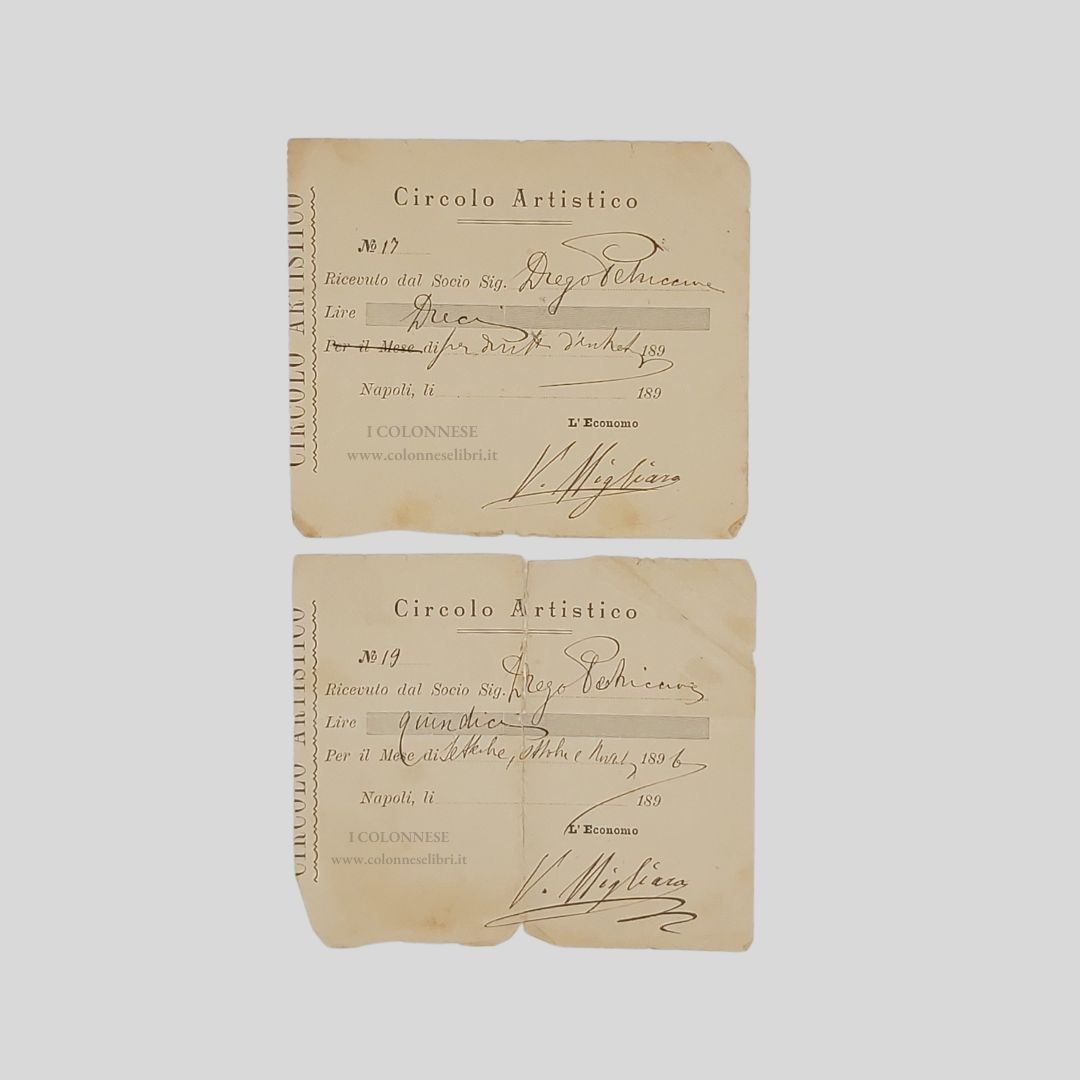 CIRCOLO ARTISTICO
Circolo Artistico
No 17
Ricevuto dal Socio Sig. Diego Petriccione
Lire Dieci
Per il Mese di per diritto d'entrat 189
Napoli, li 189
L'Economo
V. Migliaro
I COLONNESE
www.colonneselibri.it
CIRCOLO ARTISTICO
Circolo Artistico
No 19
Ricevuto dal Socio Sig. Diego Petriccione
Lire quindici
Per il Mese di Settembre, ottobre e 1896
Napoli, li 189
L'Economo
V. Migliaro
I COLONNESE
www.colonneselibri.it